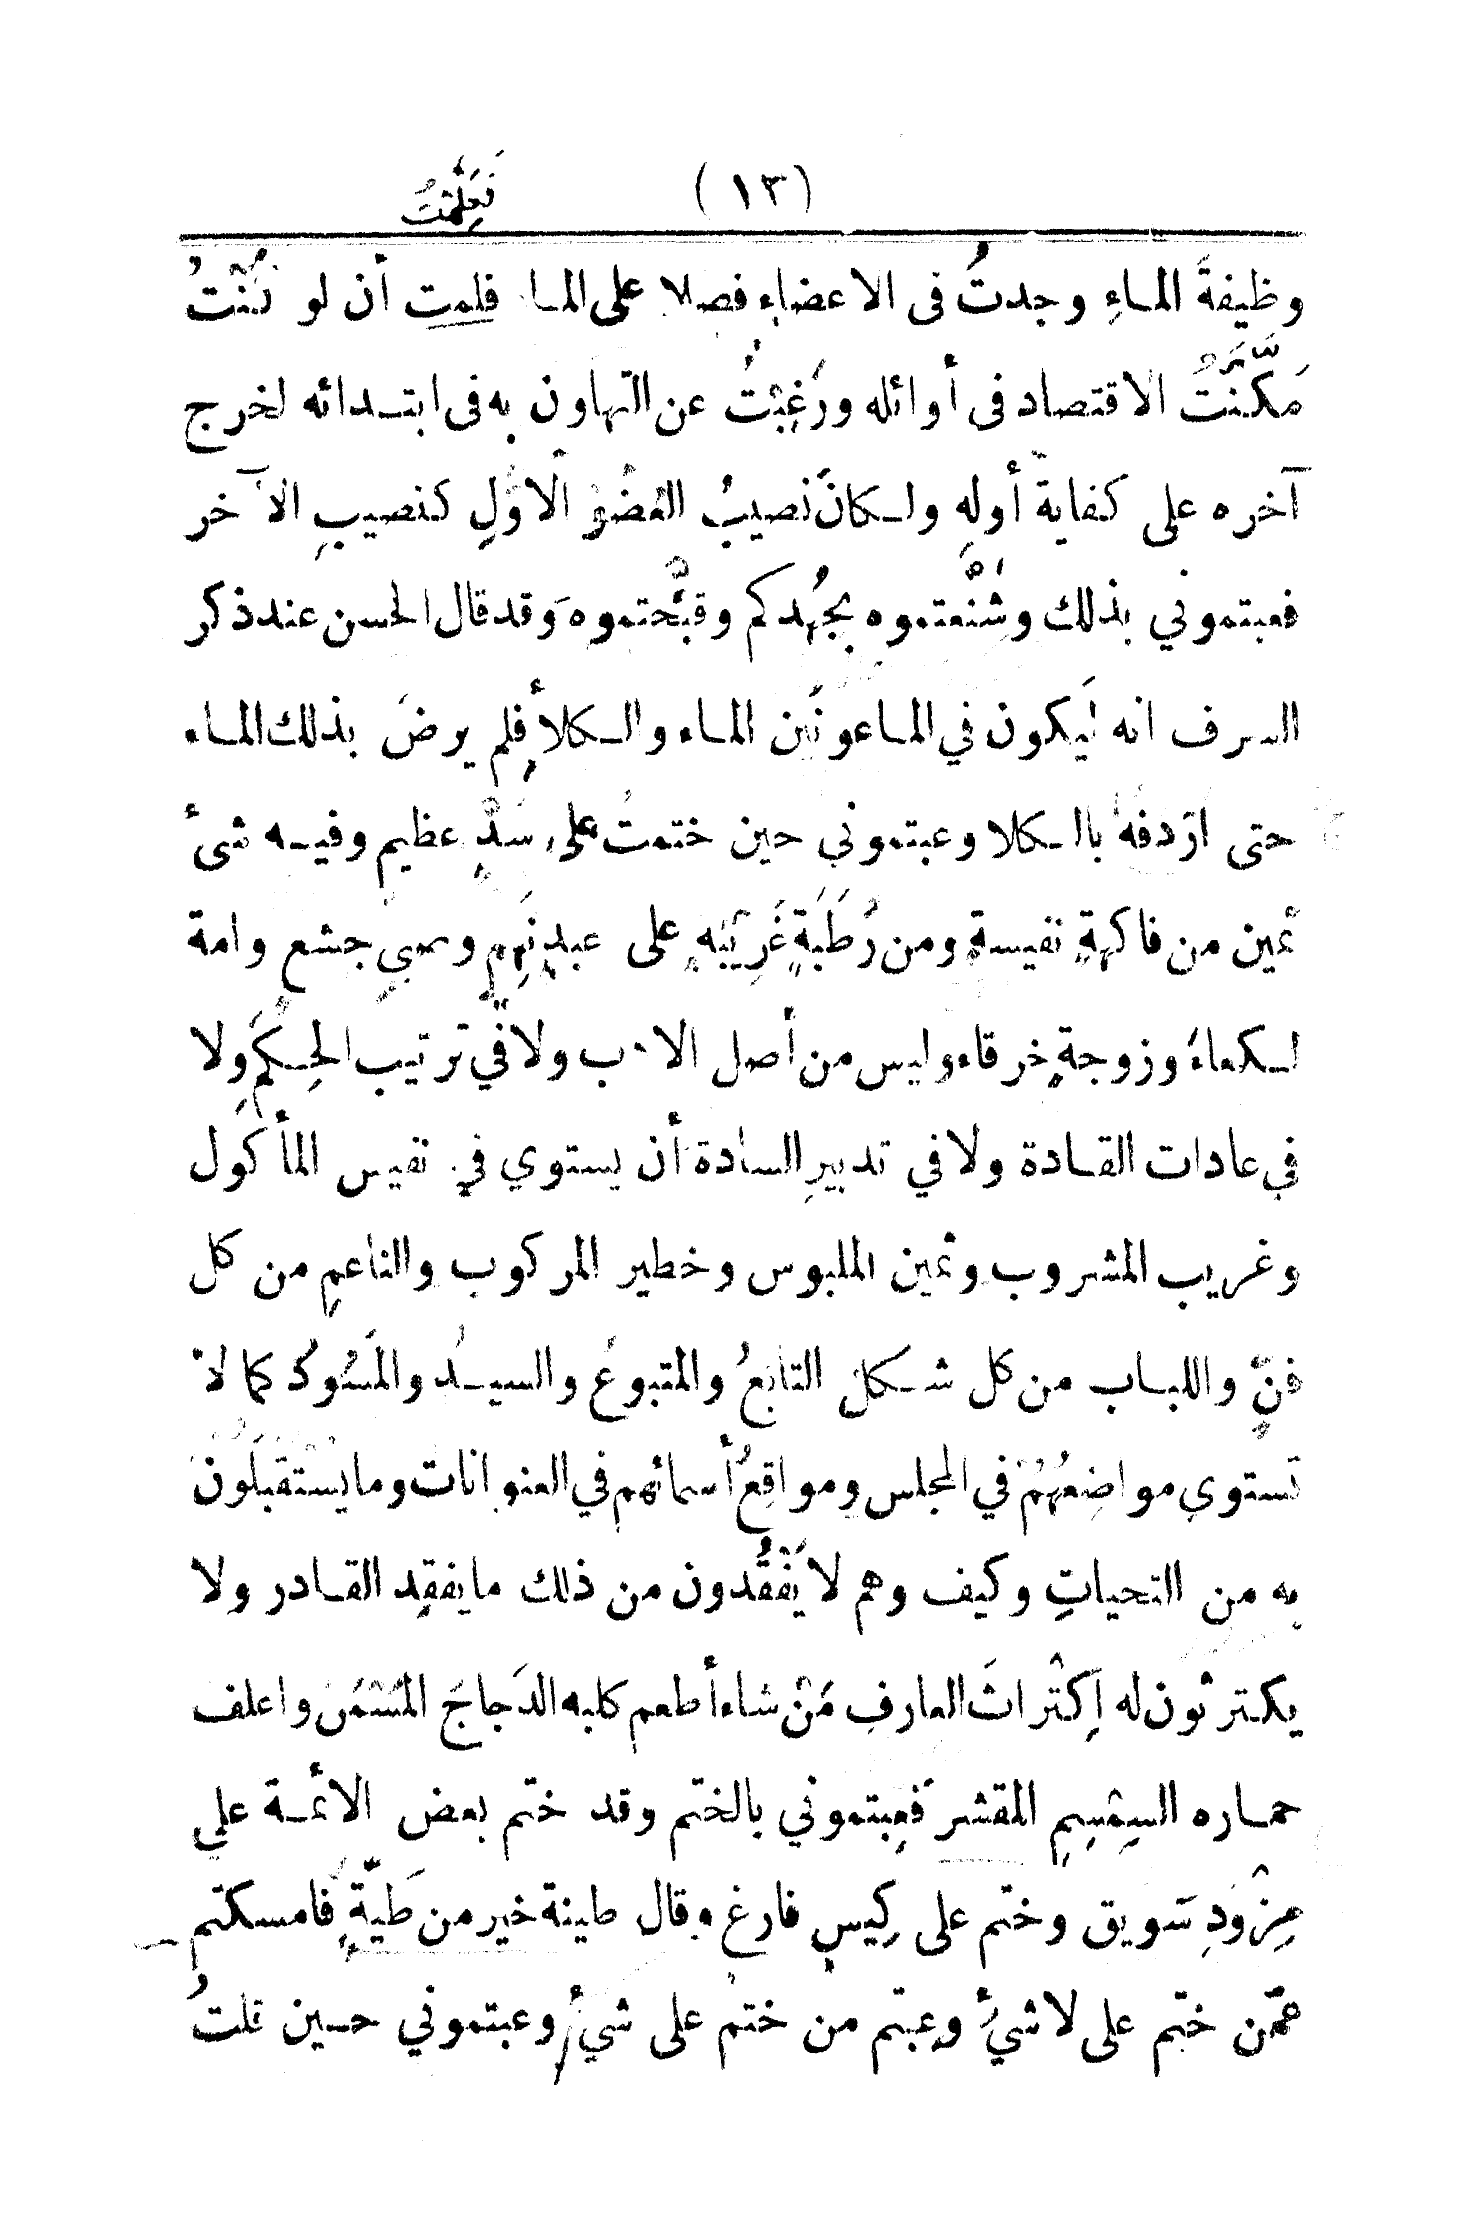 (١٣) فَعَلِمْتُ
وظيفةَ المـاءِ وجدتُ فى الاعضاءِ فصلا على المـا فلمت أن لو كُنْتُ
مَكَّنْتُ الاقتصاد فى أوائله ورَغِبْتُ عن التهاون به فى ابتـدائه لخرج
آخره على كفاية أولِهِ ولـكانَ نصيبُ العُضْوِ الأوَّلِ كنصيبِ الآخر
فعبتموني بذلك وشَنَّعتموه بجُهدكم وقبَّحتموه وَقد قال الحسن عند ذكر
السرف انه لَيكون في المـاعونَين المـاء والـكلأ فِلم يرضَ بذلك المـاء
حتى ارْدفهُ بالـكلا وعبتموني حين ختمتُ على سَدٍّ عظيم وفيـه شىء
ثمين من فاكهةٍ نفيسةٍ ومن رُطَبَةٍ غَرِيْبَهٍ على عبدٍ نَهِمٍ وصبيٍ جشعٍ وامة
لـكعاءَ وزوجةٍ خرقاء وليس من أصل الادب ولا في ترتيب الحِـكَمِ ولا
في عادات القـادة ولا في تدبيرِ السادة أن يستوي في نفيس المأكول
وغريب المشروب وثمين الملبوس وخطير المركوب والناعمِ من كل
فنٍّ واللبـاب من كل شـكل التابعُ والمتبوعُ والسيـدُ والمَسُوْدُ كما لا
تستوي مواضِعُهُمْ في المجلس ومواقِعُ أسمائهم في العنوانات وما يَسْتَقْبَلُونَ
به من التحياتِ وكيف وهم لا يَفْقُدون من ذلك ما يفقِد القـادر ولا
يكترثون له اِكْتراثَ العارفِ مَنْ شاء أطعم كلبه الدَجاجَ المُسَمَّنَ واعلف
حمـاره السِمْسِمِ المقشر فعِبتموني بالختم وقد ختم بعض الأئمـة على
مِزْوَدِ سَويق وختم على كِيسٍ فارغ وقال طينة خير من طَيَّةٍ فامسكتم
عمّن ختم على لا شيءٍ وعبتم من ختمَ على شيءٍ وعبتموني حـين قلتُ